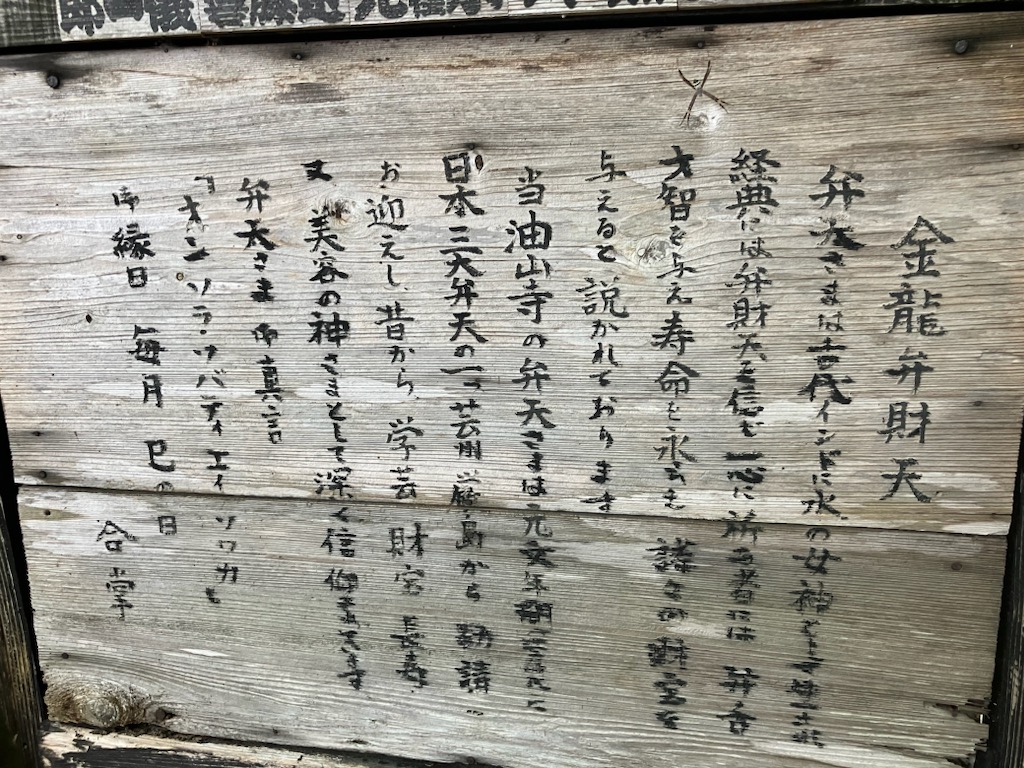 金龍弁財天
弁天さまは古代インドに水の女神として生まれ
経典には弁財天を信じ一心に祈る者には 弁舌
才智を与え寿命を永らえ 諸々の財宝を
与えると説かれております
当油山寺の弁天さまは元文年間
日本三大弁天の一つ芸州厳島から 勧請
お迎えし、昔から、学芸 財宝 長寿
又 美容の神さまとして深く信仰
弁天さま御真言
オン ソラ
御縁日 毎月 巳の日
合掌